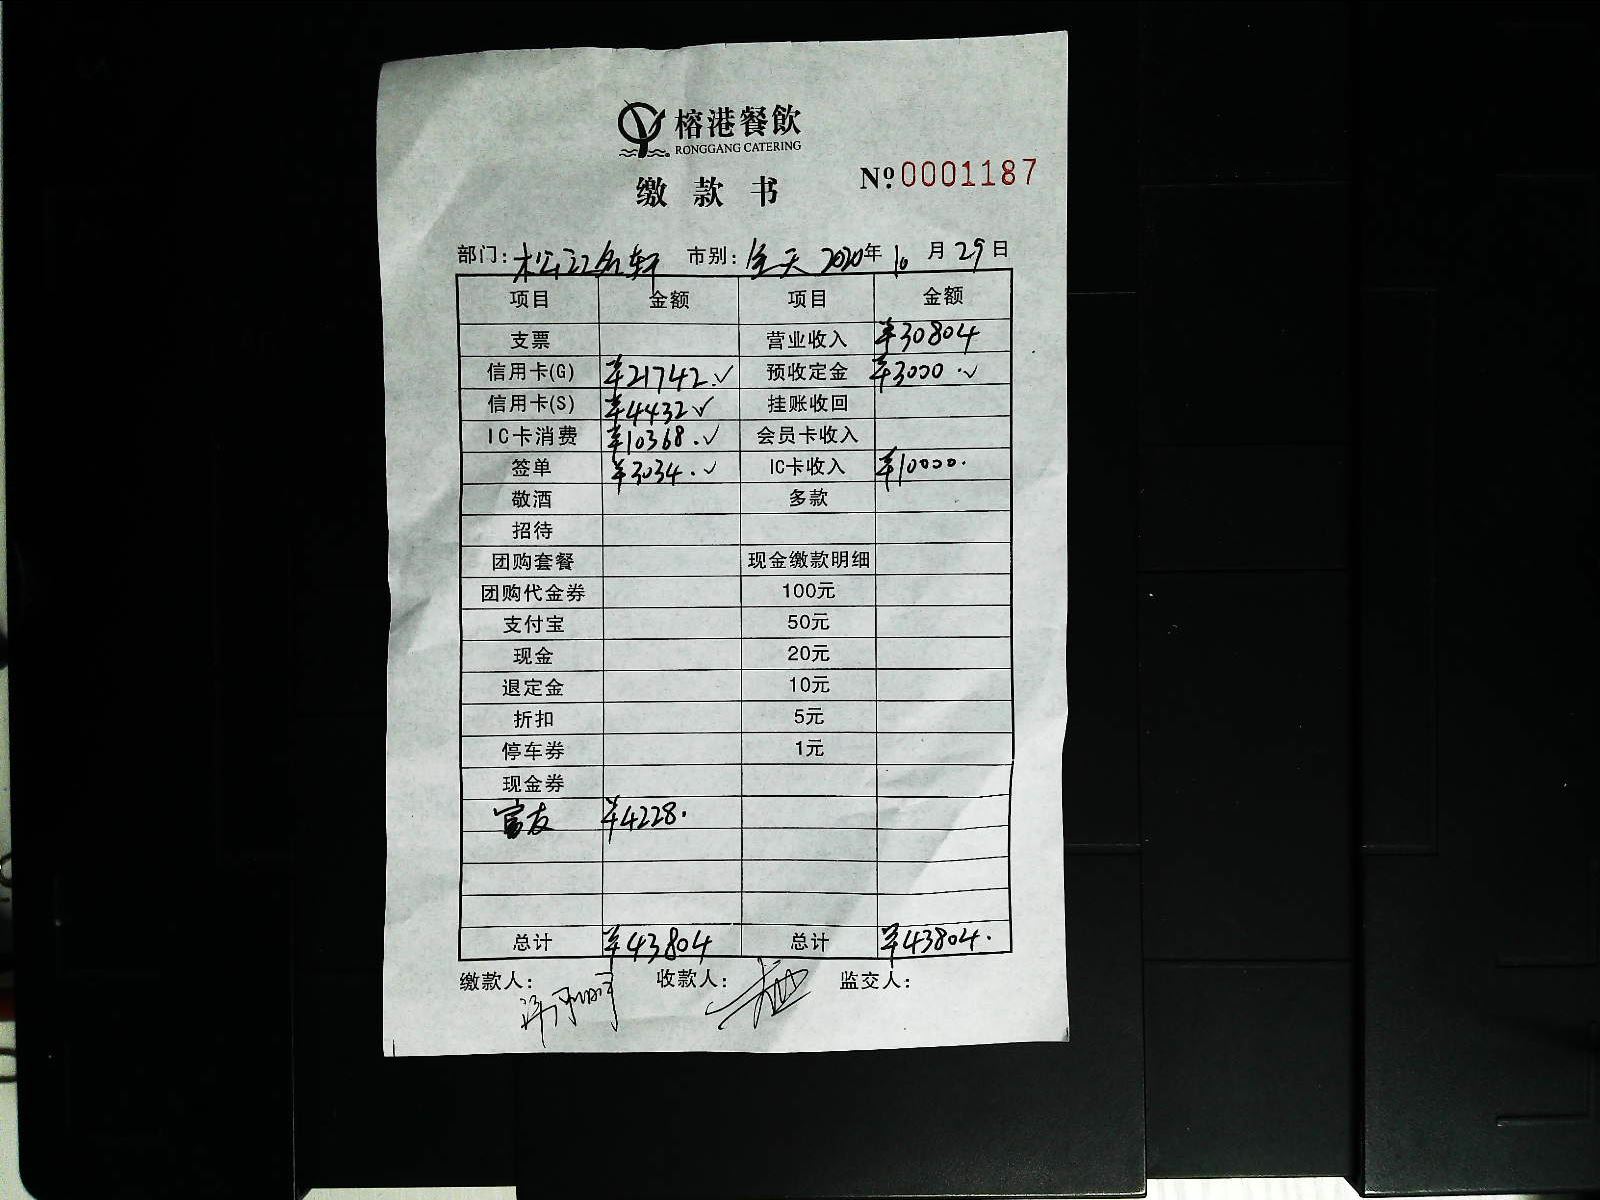 榕港餐飲
RONGGANG CATERING
缴款书 №0001187
部门: 松江名轩 市别: 全天 2020年10月29日
项目 金额 项目 金额
支票 营业收入 ¥30804
信用卡(G) ¥21742.✓ 预收定金 ¥3000.✓
信用卡(S) ¥4432✓ 挂账收回
IC卡消费 ¥10368.✓ 会员卡收入
签单 ¥3034.✓ IC卡收入 ¥10000.
敬酒 多款
招待
团购套餐 现金缴款明细
团购代金券 100元
支付宝 50元
现金 20元
退定金 10元
折扣 5元
停车券 1元
现金券
富友 ¥4228.
总计 ¥43804 总计 ¥43804.
缴款人: 收款人: 监交人: